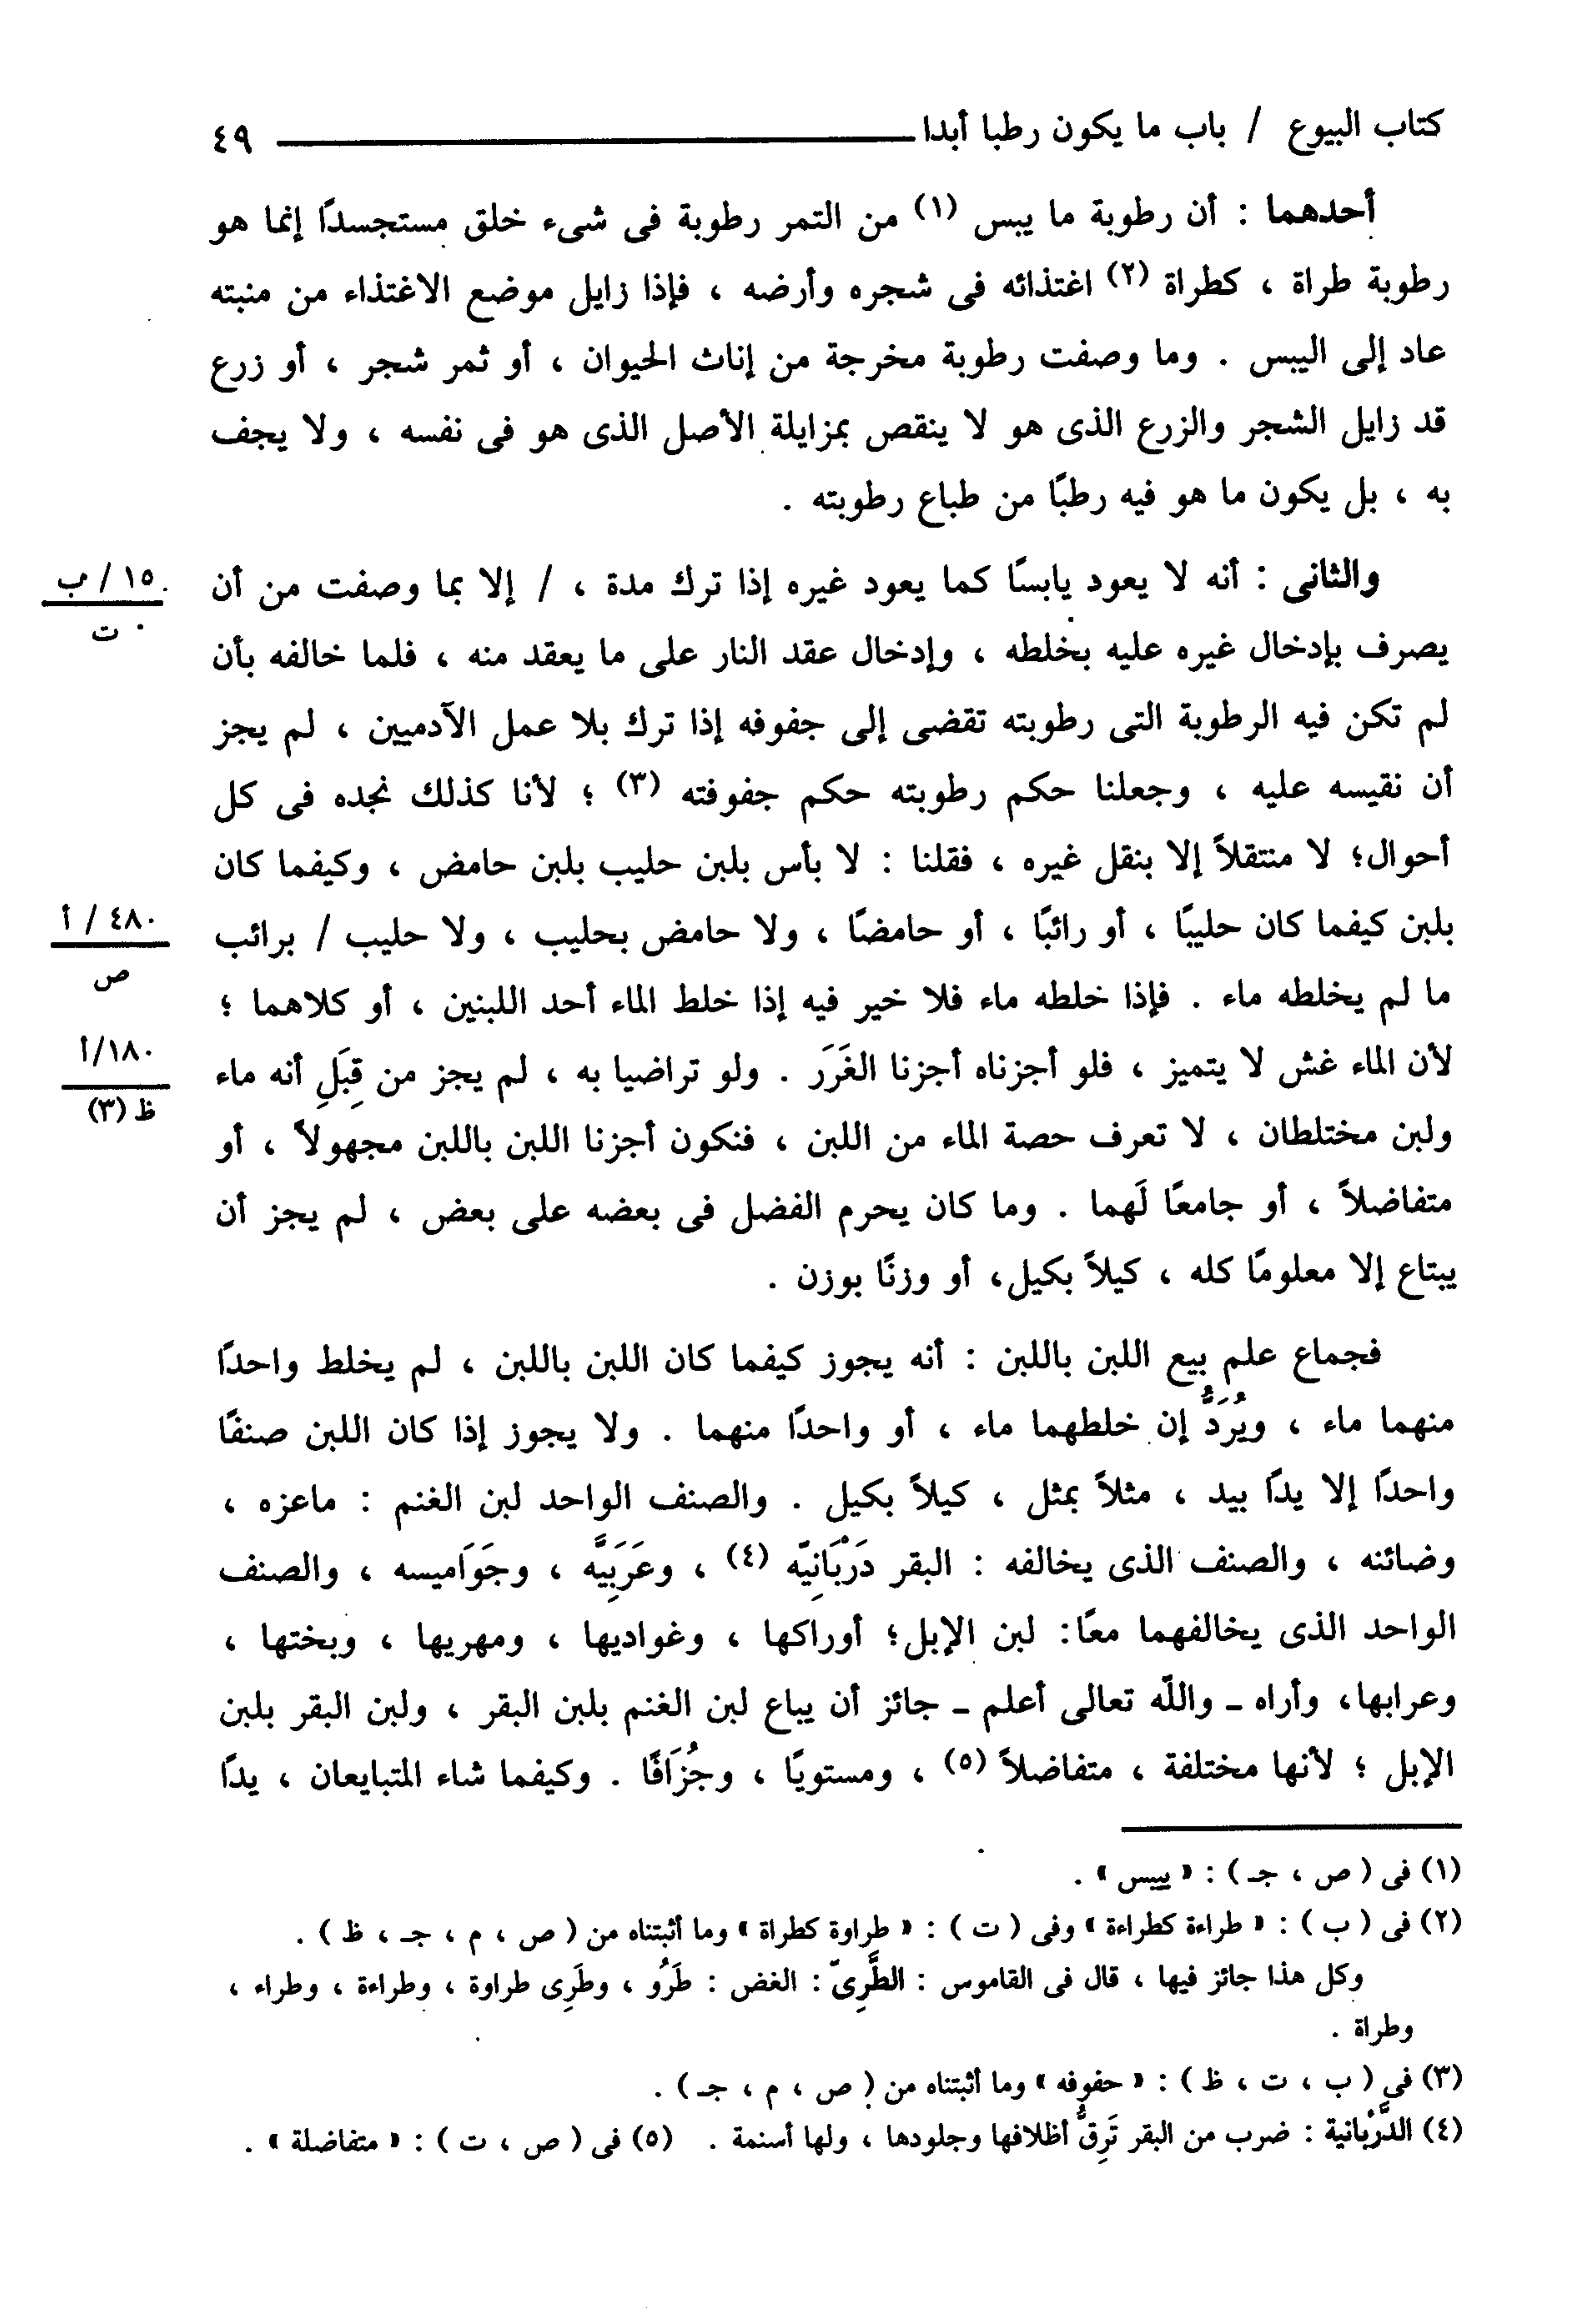 كتاب البيوع / باب ما يكون رطبا أبدا ٤٩
أحدهما : أن رطوبة ما يبس (١) من التمر رطوبة فى شىء خلق مستجسدًا إنما هو
رطوبة طراة ، كطراة (٢) اغتذائه فى شجره وأرضه ، فإذا زايل موضع الاغتذاء من منبته
عاد إلى اليبس . وما وصفت رطوبة مخرجة من إناث الحيوان ، أو ثمر شجر ، أو زرع
قد زايل الشجر والزرع الذى هو لا ينقص بمزايلة الأصل الذى هو فى نفسه ، ولا يجف
به ، بل يكون ما هو فيه رطبًا من طباع رطوبته .
والثانى : أنه لا يعود يابسًا كما يعود غيره إذا ترك مدة ، / إلا بما وصفت من أن
١٥ / ب
ت
يصرف بإدخال غيره عليه بخلطه ، وإدخال عقد النار على ما يعقد منه ، فلما خالفه بأن
لم تكن فيه الرطوبة التى رطوبته تقضى إلى جفوفه إذا ترك بلا عمل الآدميين ، لم يجز
أن نقيسه عليه ، وجعلنا حكم رطوبته حكم جفوفته (٣) ؛ لأنا كذلك نجده فى كل
أحوال؛ لا منتقلاً إلا بنقل غيره ، فقلنا : لا بأس بلبن حليب بلبن حامض ، وكيفما كان
بلبن كيفما كان حليبًا ، أو رائبًا ، أو حامضًا ، ولا حامض بحليب ، ولا حليب / برائب
٤٨٠ / أ
ص
ما لم يخلطه ماء . فإذا خلطه ماء فلا خير فيه إذا خلط الماء أحد اللبنين ، أو كلاهما ؛
لأن الماء غش لا يتميز ، فلو أجزناه أجزنا الغَرَر . ولو تراضيا به ، لم يجز من قِبَلِ أنه ماء
١٨٠/أ
ظ (٣)
ولبن مختلطان ، لا تعرف حصة الماء من اللبن ، فنكون أجزنا اللبن باللبن مجهولاً ، أو
متفاضلاً ، أو جامعًا لَهما . وما كان يحرم الفضل فى بعضه على بعض ، لم يجز أن
يبتاع إلا معلومًا كله ، كيلاً بكيل، أو وزنًا بوزن .
فجماع علم بيع اللبن باللبن : أنه يجوز كيفما كان اللبن باللبن ، لم يخلط واحدًا
منهما ماء ، ويُرَدُّ إن خلطهما ماء ، أو واحدًا منهما . ولا يجوز إذا كان اللبن صنفًا
واحدًا إلا يدًا بيد ، مثلاً بمثل ، كيلاً بكيل . والصنف الواحد لبن الغنم : ماعزه ،
وضائنه ، والصنف الذى يخالفه : البقر دَرْبَانِيّه (٤) ، وعَرَبِيَّه ، وجَوَاميسه ، والصنف
الواحد الذى يخالفهما معًا: لبن الإبل؛ أوراكها ، وغواديها ، ومهريها ، وبختها ،
وعرابها، وأراه ـ واللّه تعالى أعلم ـ جائز أن يباع لبن الغنم بلبن البقر ، ولبن البقر بلبن
الإبل ؛ لأنها مختلفة ، متفاضلاً (٥) ، ومستويًا ، وجُزَافًا . وكيفما شاء المتبايعان ، يدًا
(١) فى ( ص ، جـ ) : « ييبس » .
(٢) فى ( ب ) : « طراءة كطراءة » وفى ( ت ) : « طراوة كطراة » وما أثبتناه من ( ص ، م ، جـ ، ظ ) .
وكل هذا جائز فيها ، قال فى القاموس : الطَّرِىّ : الغض : طَرُو ، وطَرِى طراوة ، وطراءة ، وطراء ،
وطراة .
(٣) فى ( ب ، ت ، ظ ) : « حفوفه » وما أثبتناه من ( ص ، م ، جـ ) .
(٤) الدَّرْبانية : ضرب من البقر تَرِقُّ أظلافها وجلودها ، ولها أسنمة . (٥) فى ( ص ، ت ) : « متفاضلة » .